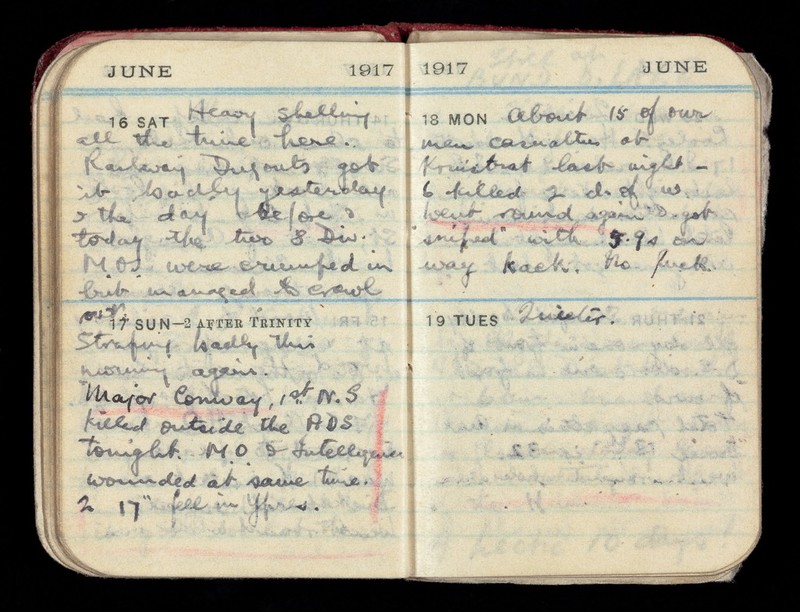 JUNE 1917
16 SAT Heavy shelling
all the time here.
Railway Dugouts got
it badly yesterday
& the day before &
today the two 8 Div.
M.Os. were crumped in
but managed to crawl
out.
17 SUN—2 AFTER TRINITY
Strafing badly this
morning again.
Major Conway, 1st N.S
killed outside the ADS
tonight. MO & Intelligence
wounded at same time.
2 17" fell in Ypres.
1917 JUNE
18 MON About 15 of our
men casualties at
Kruistrat last night –
6 killed 2 d. of w.
Went round again & got
"sniped" with 5.9s on
way back. No luck.
19 TUES Quieter.
A hectic 10 days!